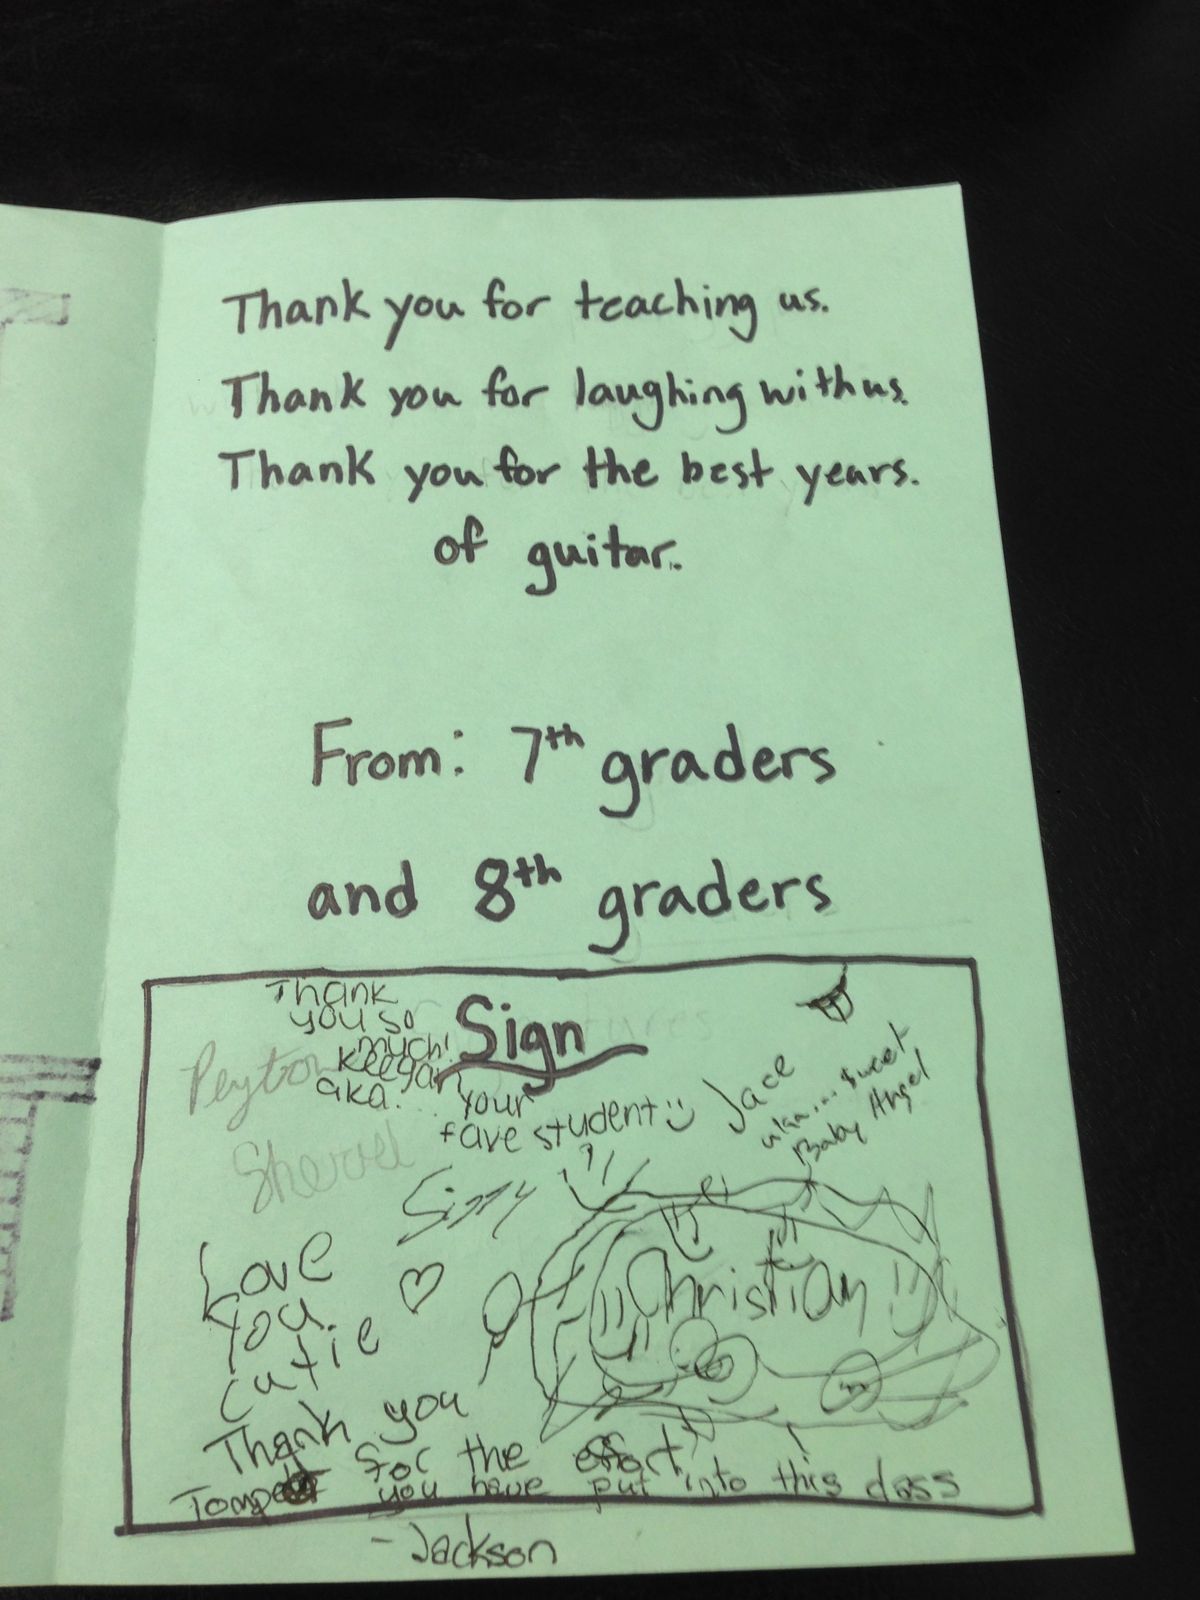 Thank you for teaching us.
Thank you for laughing with us.
Thank you for the best years.
of guitar.
From: 7th graders
and 8th graders
Sign
Thank
you so
much!
Keegan
aka...
your
fave student
Peyton
Jace
aka... Sweet
Baby Angel
Love
you
cutie
Christian
Thank you
for the effort
you have put into this class
-Jackson